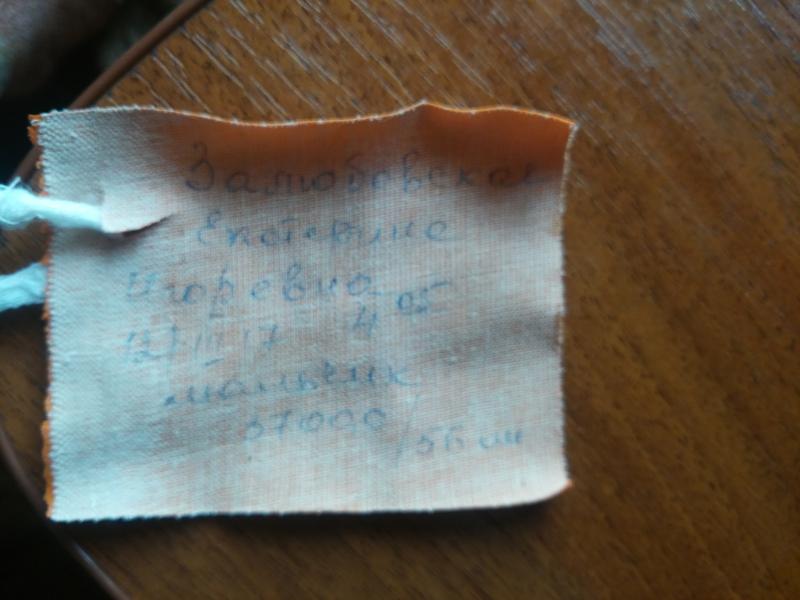 Залюбовская
Екатерина
Игоревна
12/III 17 4 05
мальчик
37000/56 см